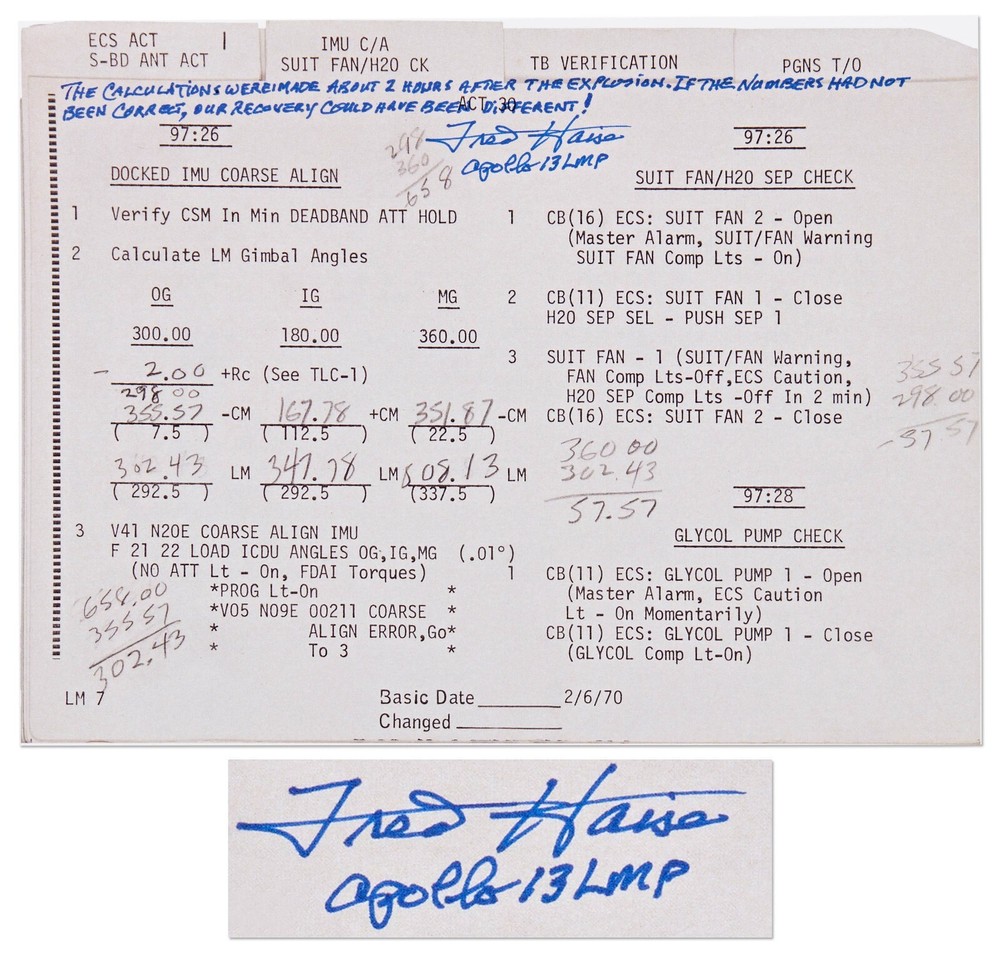 ECS ACT
S-BD ANT ACT
IMU C/A
SUIT FAN/H2O CK
TB VERIFICATION
PGNS T/O
THE CALCULATIONS WERE MADE ABOUT 2 HOURS AFTER THE EXPLOSION. IF THE NUMBERS HAD NOT
BEEN CORRECT, OUR RECOVERY COULD HAVE BEEN DIFFERENT!
ACT-30
Fred Haise
Apollo 13 LMP
298
360
658
97:26
DOCKED IMU COARSE ALIGN
1 Verify CSM In Min DEADBAND ATT HOLD
2 Calculate LM Gimbal Angles
OG IG MG
300.00 180.00 360.00
- 2.00 +Rc (See TLC-1)
298 00
355.57 -CM 167.78 +CM 351.87 -CM
( 7.5 ) (112.5 ) ( 22.5 )
302.43 LM 347.78 LM 08.13 LM
( 292.5 ) ( 292.5 ) (337.5 )
3 V41 N20E COARSE ALIGN IMU
F 21 22 LOAD ICDU ANGLES OG,IG,MG (.01°)
(NO ATT Lt - On, FDAI Torques)
*PROG Lt-On *
*V05 N09E 00211 COARSE *
* ALIGN ERROR,Go*
* To 3 *
658.00
355 57
302.43
97:26
SUIT FAN/H2O SEP CHECK
1 CB(16) ECS: SUIT FAN 2 - Open
(Master Alarm, SUIT/FAN Warning
SUIT FAN Comp Lts - On)
2 CB(11) ECS: SUIT FAN 1 - Close
H2O SEP SEL - PUSH SEP 1
3 SUIT FAN - 1 (SUIT/FAN Warning,
FAN Comp Lts-Off,ECS Caution,
H2O SEP Comp Lts -Off In 2 min)
CB(16) ECS: SUIT FAN 2 - Close
355.57
298.00
-57 57
360 00
302.43
57.57
97:28
GLYCOL PUMP CHECK
1 CB(11) ECS: GLYCOL PUMP 1 - Open
(Master Alarm, ECS Caution
Lt - On Momentarily)
CB(11) ECS: GLYCOL PUMP 1 - Close
(GLYCOL Comp Lt-On)
LM 7
Basic Date 2/6/70
Changed
Fred Haise
Apollo 13 LMP